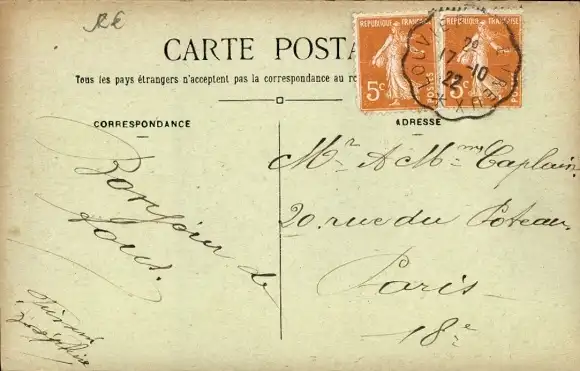 RE
CARTE POSTA
Tous les pays étrangers n'acceptent pas la correspondance au
RÉPUBLIQUE FRANÇAISE
5c
POSTES
RÉPUBLIQUE FRANÇAISE
5c
17-10
22
CORRESPONDANCE
ADRESSE
Bonjour de
tous.
Joséphine
Mr A Mme Caplain
20. rue du Poteau.
Paris
18e